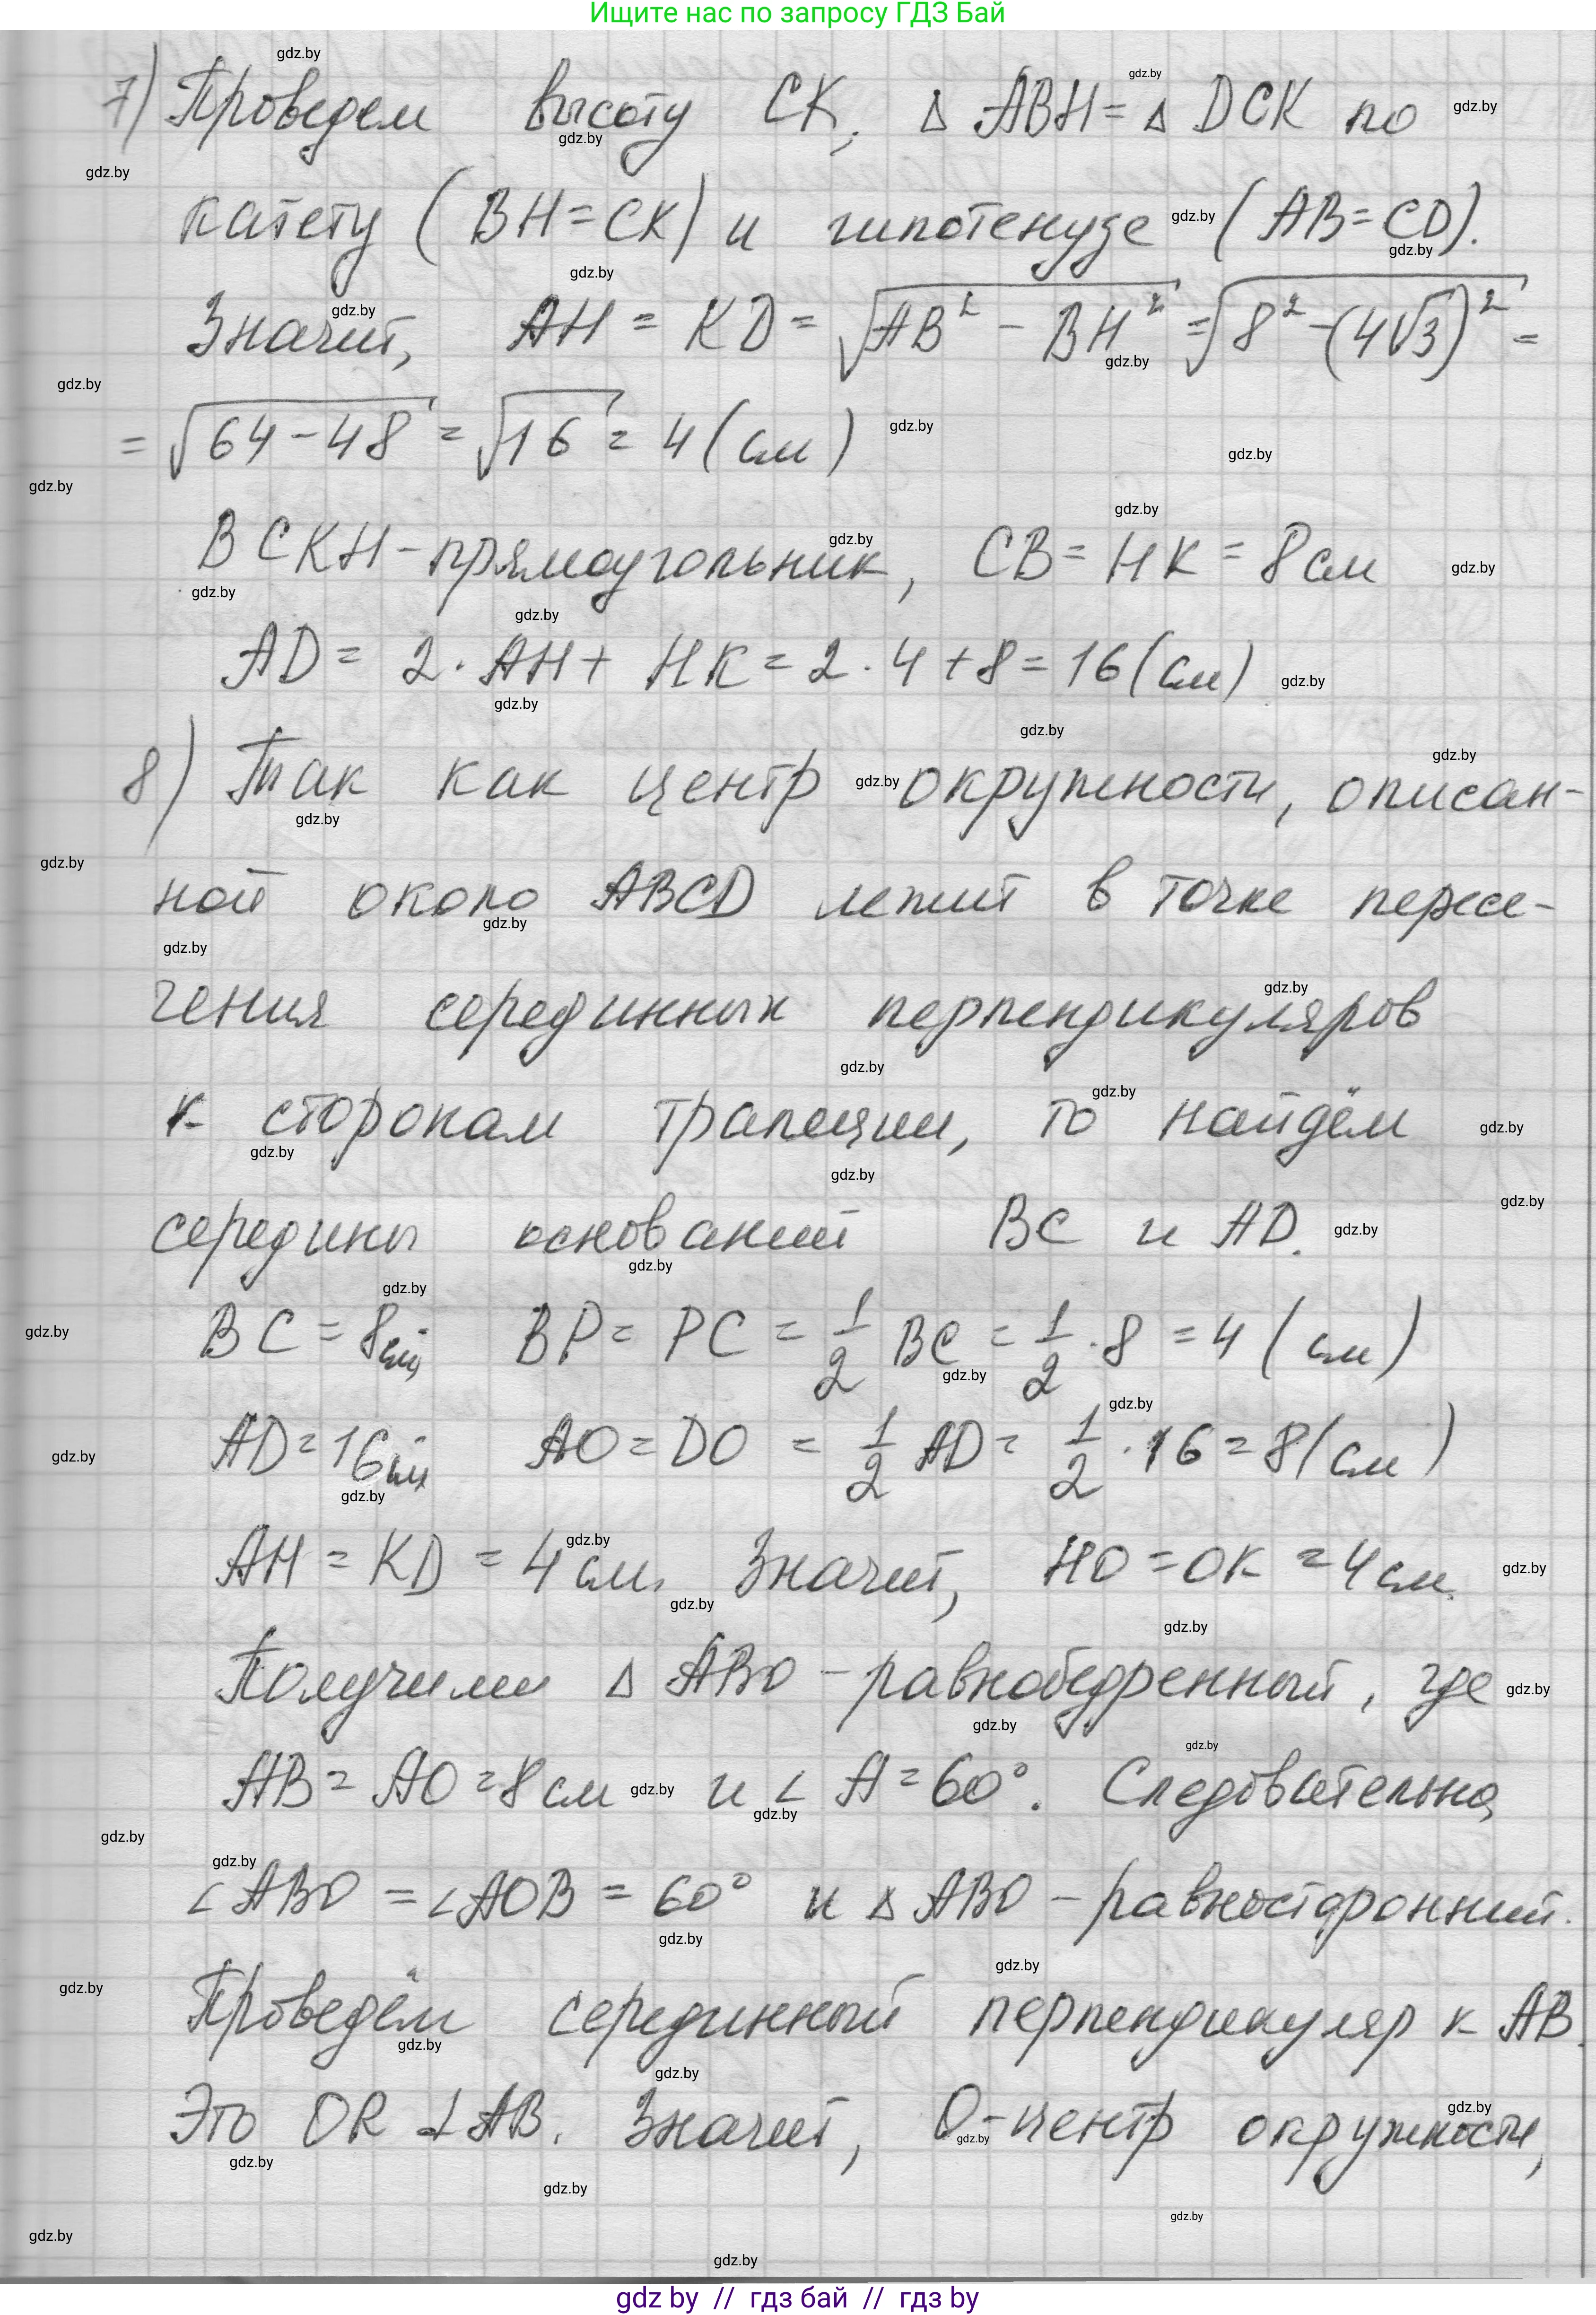 Ищите нас по запросу ГДЗ Бай
7) Проведем высоту CK, △ ABH = △ DCK по
катету (BH = CK) и гипотенузе (AB = CD).
Значит, AH = KD = √(AB² - BH²) = √(8² - (4√3)²) =
= √(64 - 48) = √16 = 4 (см)
BCKH - прямоугольник, CB = HK = 8 см
AD = 2 · AH + HK = 2 · 4 + 8 = 16 (см)
8) Так как центр окружности, описан-
ной около ABCD лежит в точке пересе-
чения серединных перпендикуляров
к сторонам трапеции, то найдём
середины оснований BC и AD.
BC = 8 см, BP = PC = 1/2 BC = 1/2 · 8 = 4 (см)
AD = 16 см AO = DO = 1/2 AD = 1/2 · 16 = 8 (см)
AH = KD = 4 см. Значит, HO = OK = 4 см.
Получили △ ABO - равнобедренный, где
AB = AO = 8 см и ∠ A = 60°. Следовательно,
∠ ABO = ∠ AOB = 60° и △ ABO - равносторонний.
Проведём серединный перпендикуляр к AB.
Это OR ⊥ AB. Значит, O - центр окружности,
gdz by // гдз бай // гдз by